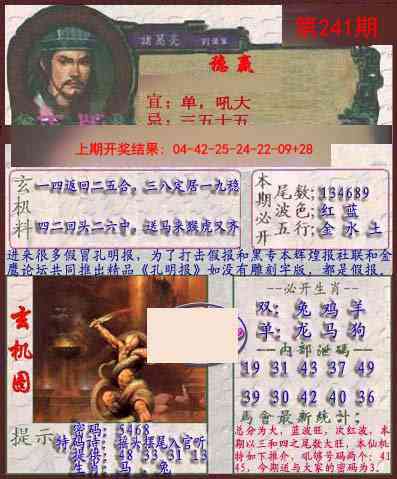 第241期
諸葛亮
稳赢
宜：单，吼大
忌：三五十五
上期开奖结果：04-42-25-24-22-09+28
玄机料
一四返回二五合，三八定居一九稳
四二回头二六中，送马来猴虎又齐
本期必开
尾数：134689
波色：红 蓝
五行：金 水 土
进来很多假冒孔明报，为了打击假报和黑专本辉煌报社联和金
鹰论坛共同推出精品《孔明报》如没有雕刻字版，都是假报。
玄机图
--必开生肖--
双：兔 鸡 羊
单：龙 马 狗
--内部泄码--
19 31 43 37 49
39 30 42 40 36
馬會最新统计：
总分为大，蓝波旺，次红波，本
期以三和四之尾数大旺，本仙机
特如下推介，吼够号码两个：41
45，今期送与大家的密码为3．
提示
密码：5468
特码诗：摇头摆尾入官听
提供：48 33 31 13
生肖：马 、兔